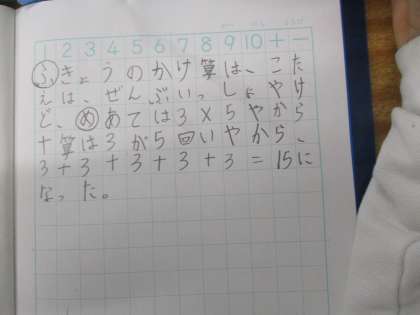 1 2 3 4 5 6 7 8 9 10 + −
ふきょうのかけ算は、こた
えは、ぜんぶいっしょやけ
ど、めあては3×5やから
+算は3が5回いやから、
3+3+3+3+3=15に
なった。